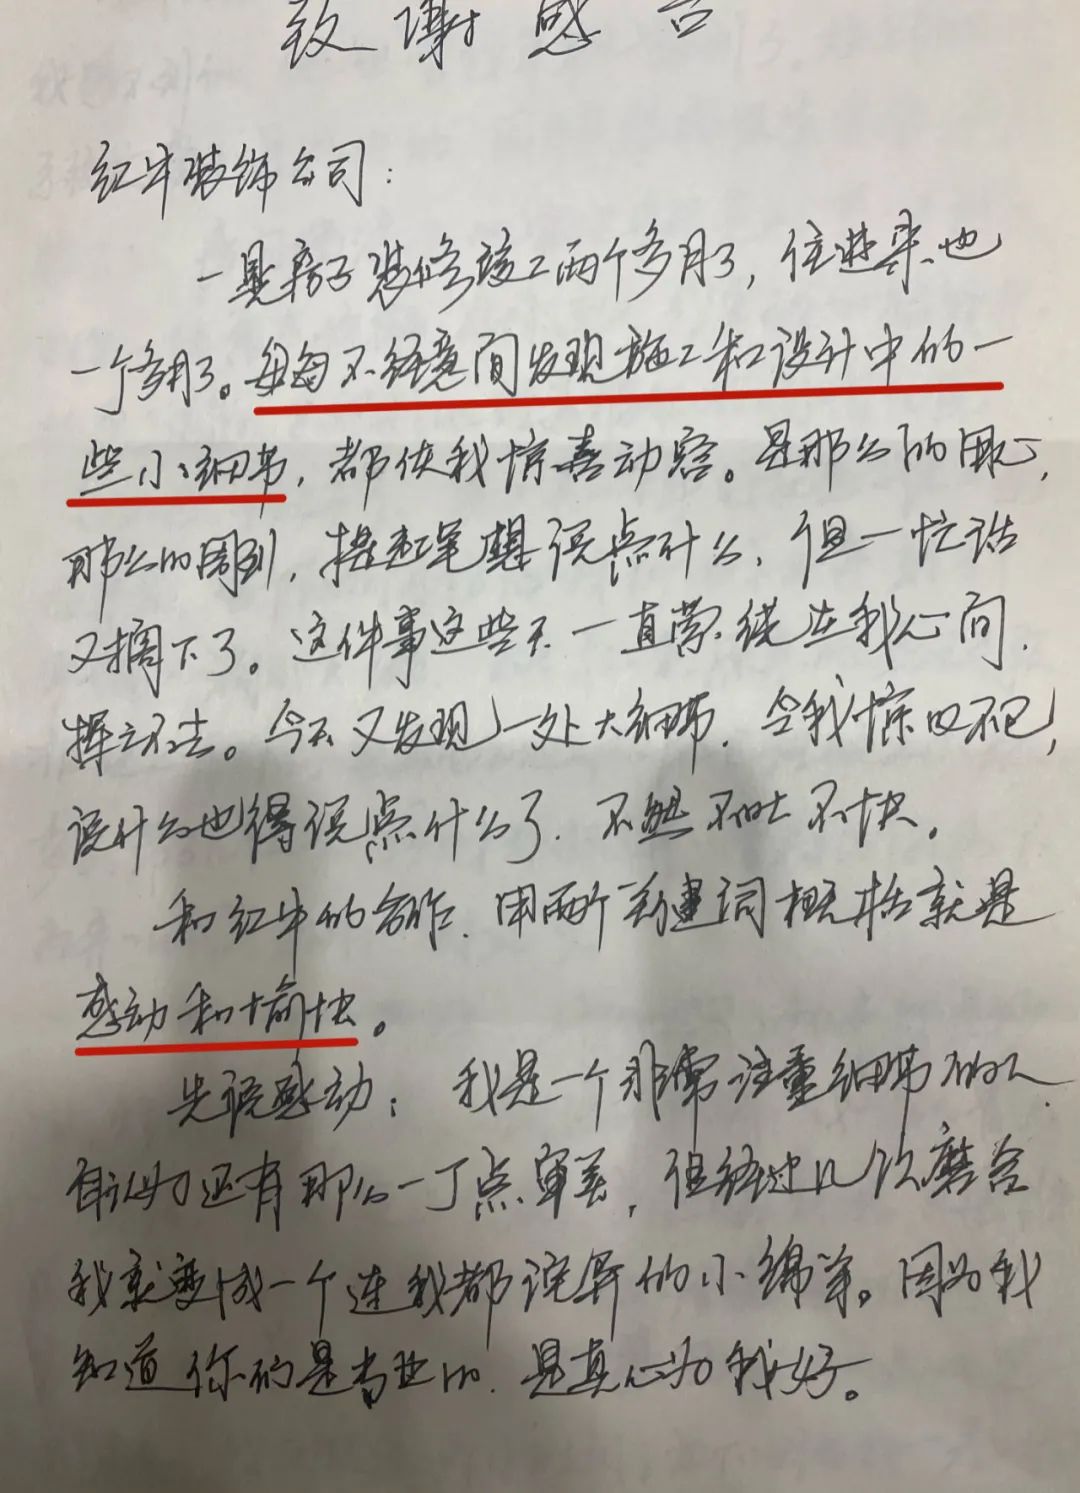 致谢感言
红牛装饰公司：
一晃房子装修竣工两个多月了，住进来也
一个多月了。每每不经意间发现施工和设计中的一
些小细节，都使我惊喜动容。是那么的用心，
那么的周到，提起笔想说点什么，但一忙话
又搁下了。这件事这些天一直萦绕在我心间，
挥之不去。今天又发现一处大细节，令我惊叹不已，
说什么也得说点什么了，不然不吐不快。
和红牛的合作，用两个关键词概括就是
感动和愉快。
先说感动：我是一个非常注重细节的人
自认为还有那么一丁点审美，但经过几次磨合
我就变成一个连我都诧异的小绵羊。因为我
知道你们是专业的，是真心为我好。